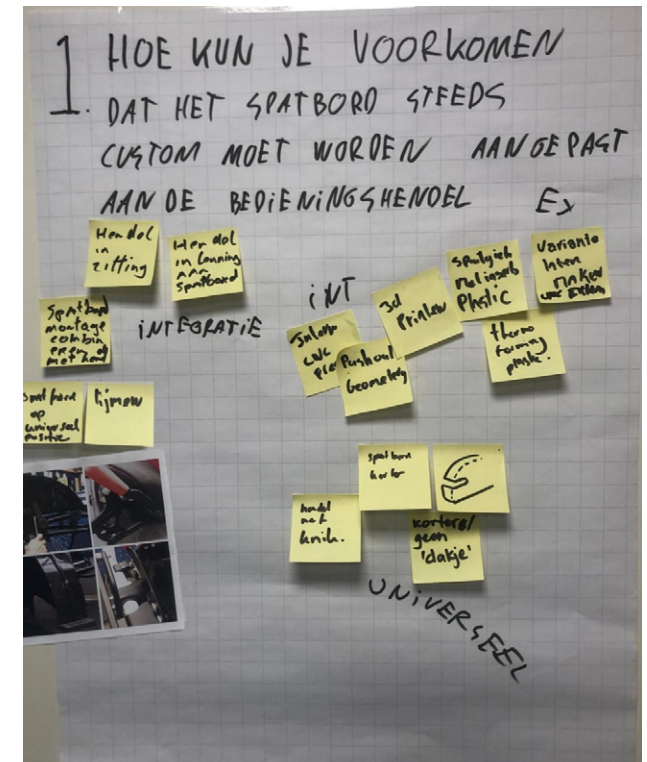 1. HOE KUN JE VOORKOMEN
DAT HET SPATBORD STEEDS
CUSTOM MOET WORDEN AANGEPAST
AAN DE BEDIENINGSHENDEL Ex
Hendel
in
zitting
Hendel
in
aan
spatbord
Spatbord
montage
combin
met
INTEGRATIE
spatbord
op
universeel
positie
lijmen
INT
CNC
Pushout
Geometry
3d
Printen
spuitgiet
met inserts
Plastic
Variante
laten
maken
thermo
forming
plastic.
spatbord
korter
hendel
met
knik.
korter/
geen
'dakje'
UNIVERSEEL